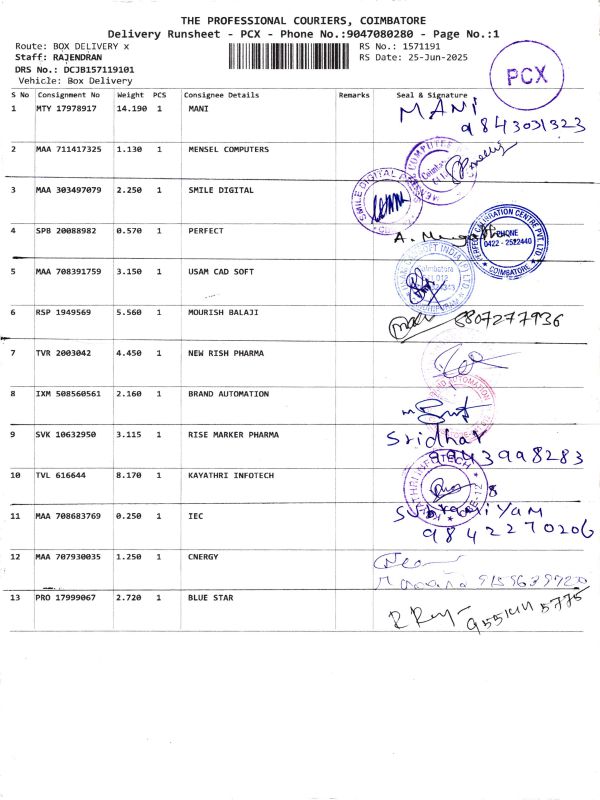 THE PROFESSIONAL COURIERS, COIMBATORE
Delivery Runsheet - PCX - Phone No.:9047080280 - Page No.:1
Route: BOX DELIVERY x RS No.: 1571191
Staff: RAJENDRAN RS Date: 25-Jun-2025
DRS No.: DCJB157119101
Vehicle: Box Delivery
PCX
S No Consignment No Weight PCS Consignee Details Remarks Seal & Signature
1 MTY 17978917 14.190 1 MANI MANI
9843031323
2 MAA 711417325 1.130 1 MENSEL COMPUTERS
3 MAA 303497079 2.250 1 SMILE DIGITAL
SMILE DIGITAL
4 SPB 20088982 0.570 1 PERFECT
CALIBRATION CENTRE PVT. LTD
PHONE
0422 - 2522440
COIMBATORE
5 MAA 708391759 3.150 1 USAM CAD SOFT
6 RSP 1949569 5.560 1 MOURISH BALAJI 8807277936
7 TVR 2003042 4.450 1 NEW RISH PHARMA
8 IXM 508560561 2.160 1 BRAND AUTOMATION
AUTOMATION
9 SVK 10632950 3.115 1 RISE MARKER PHARMA Sridhar
9943998283
10 TVL 616644 8.170 1 KAYATHRI INFOTECH
INFOTECH
11 MAA 708683769 0.250 1 IEC
9842270206
12 MAA 707930035 1.250 1 CNERGY
13 PRO 17999067 2.720 1 BLUE STAR